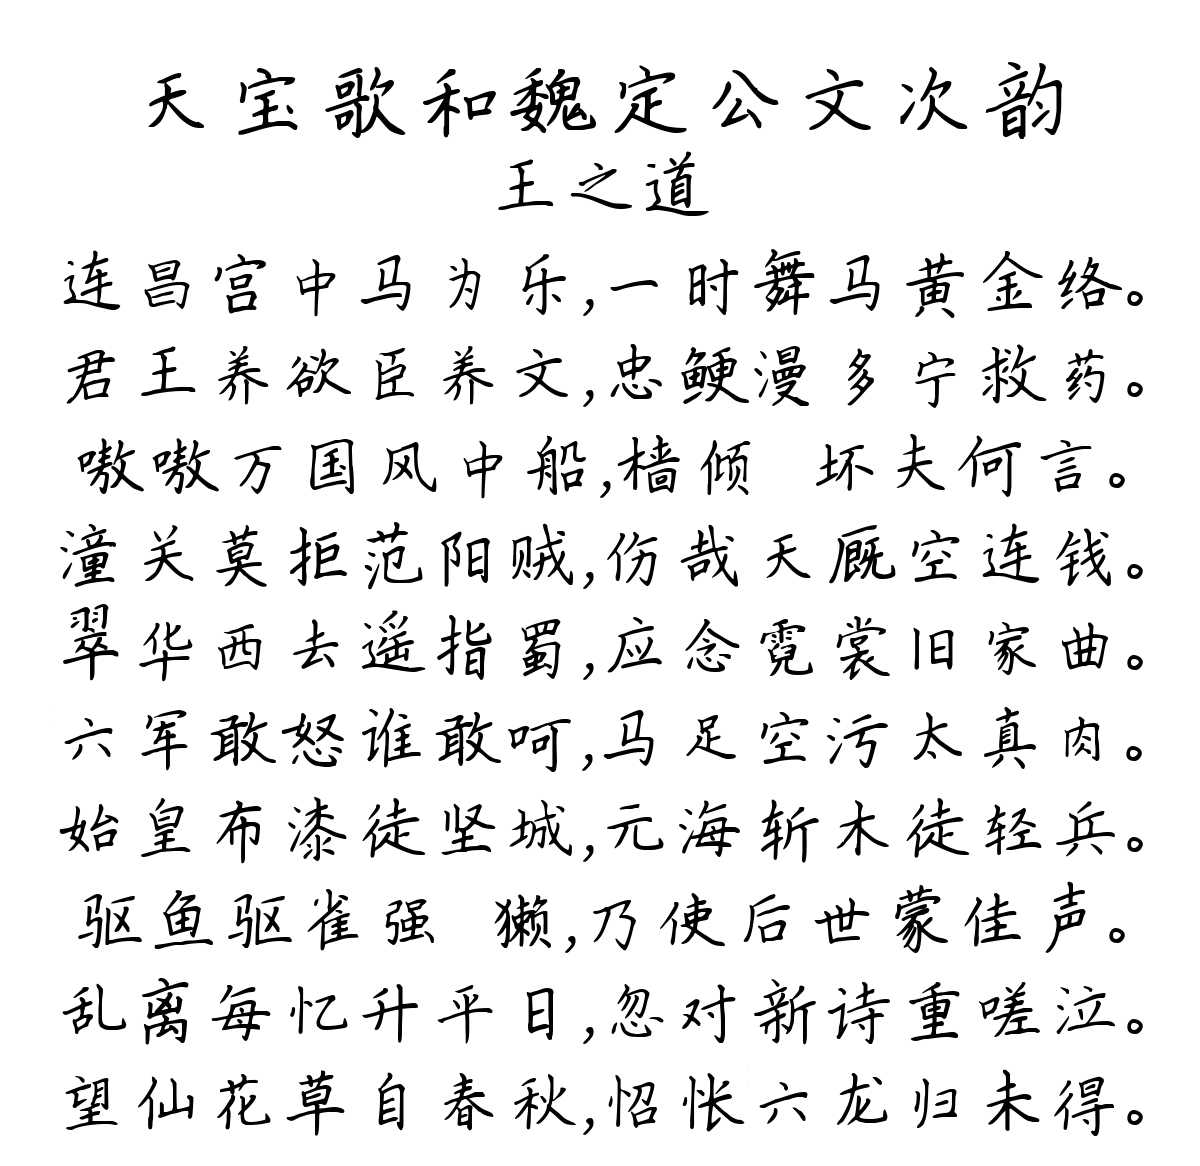 天宝歌和魏定公文次韵
王之道
连昌宫中马为乐,一时舞马黄金络。
君王养欲臣养文,忠鲠漫多宁救药。
嗷嗷万国风中船,樯倾 坏夫何言。
潼关莫拒范阳贼,伤哉天厩空连钱。
翠华西去遥指蜀,应念霓裳旧家曲。
六军敢怒谁敢呵,马足空污太真肉。
始皇布漆徒坚城,元海斩木徒轻兵。
驱鱼驱雀强 獭,乃使后世蒙佳声。
乱离每忆升平日,忽对新诗重嗟泣。
望仙花草自春秋,怊怅六龙归未得。